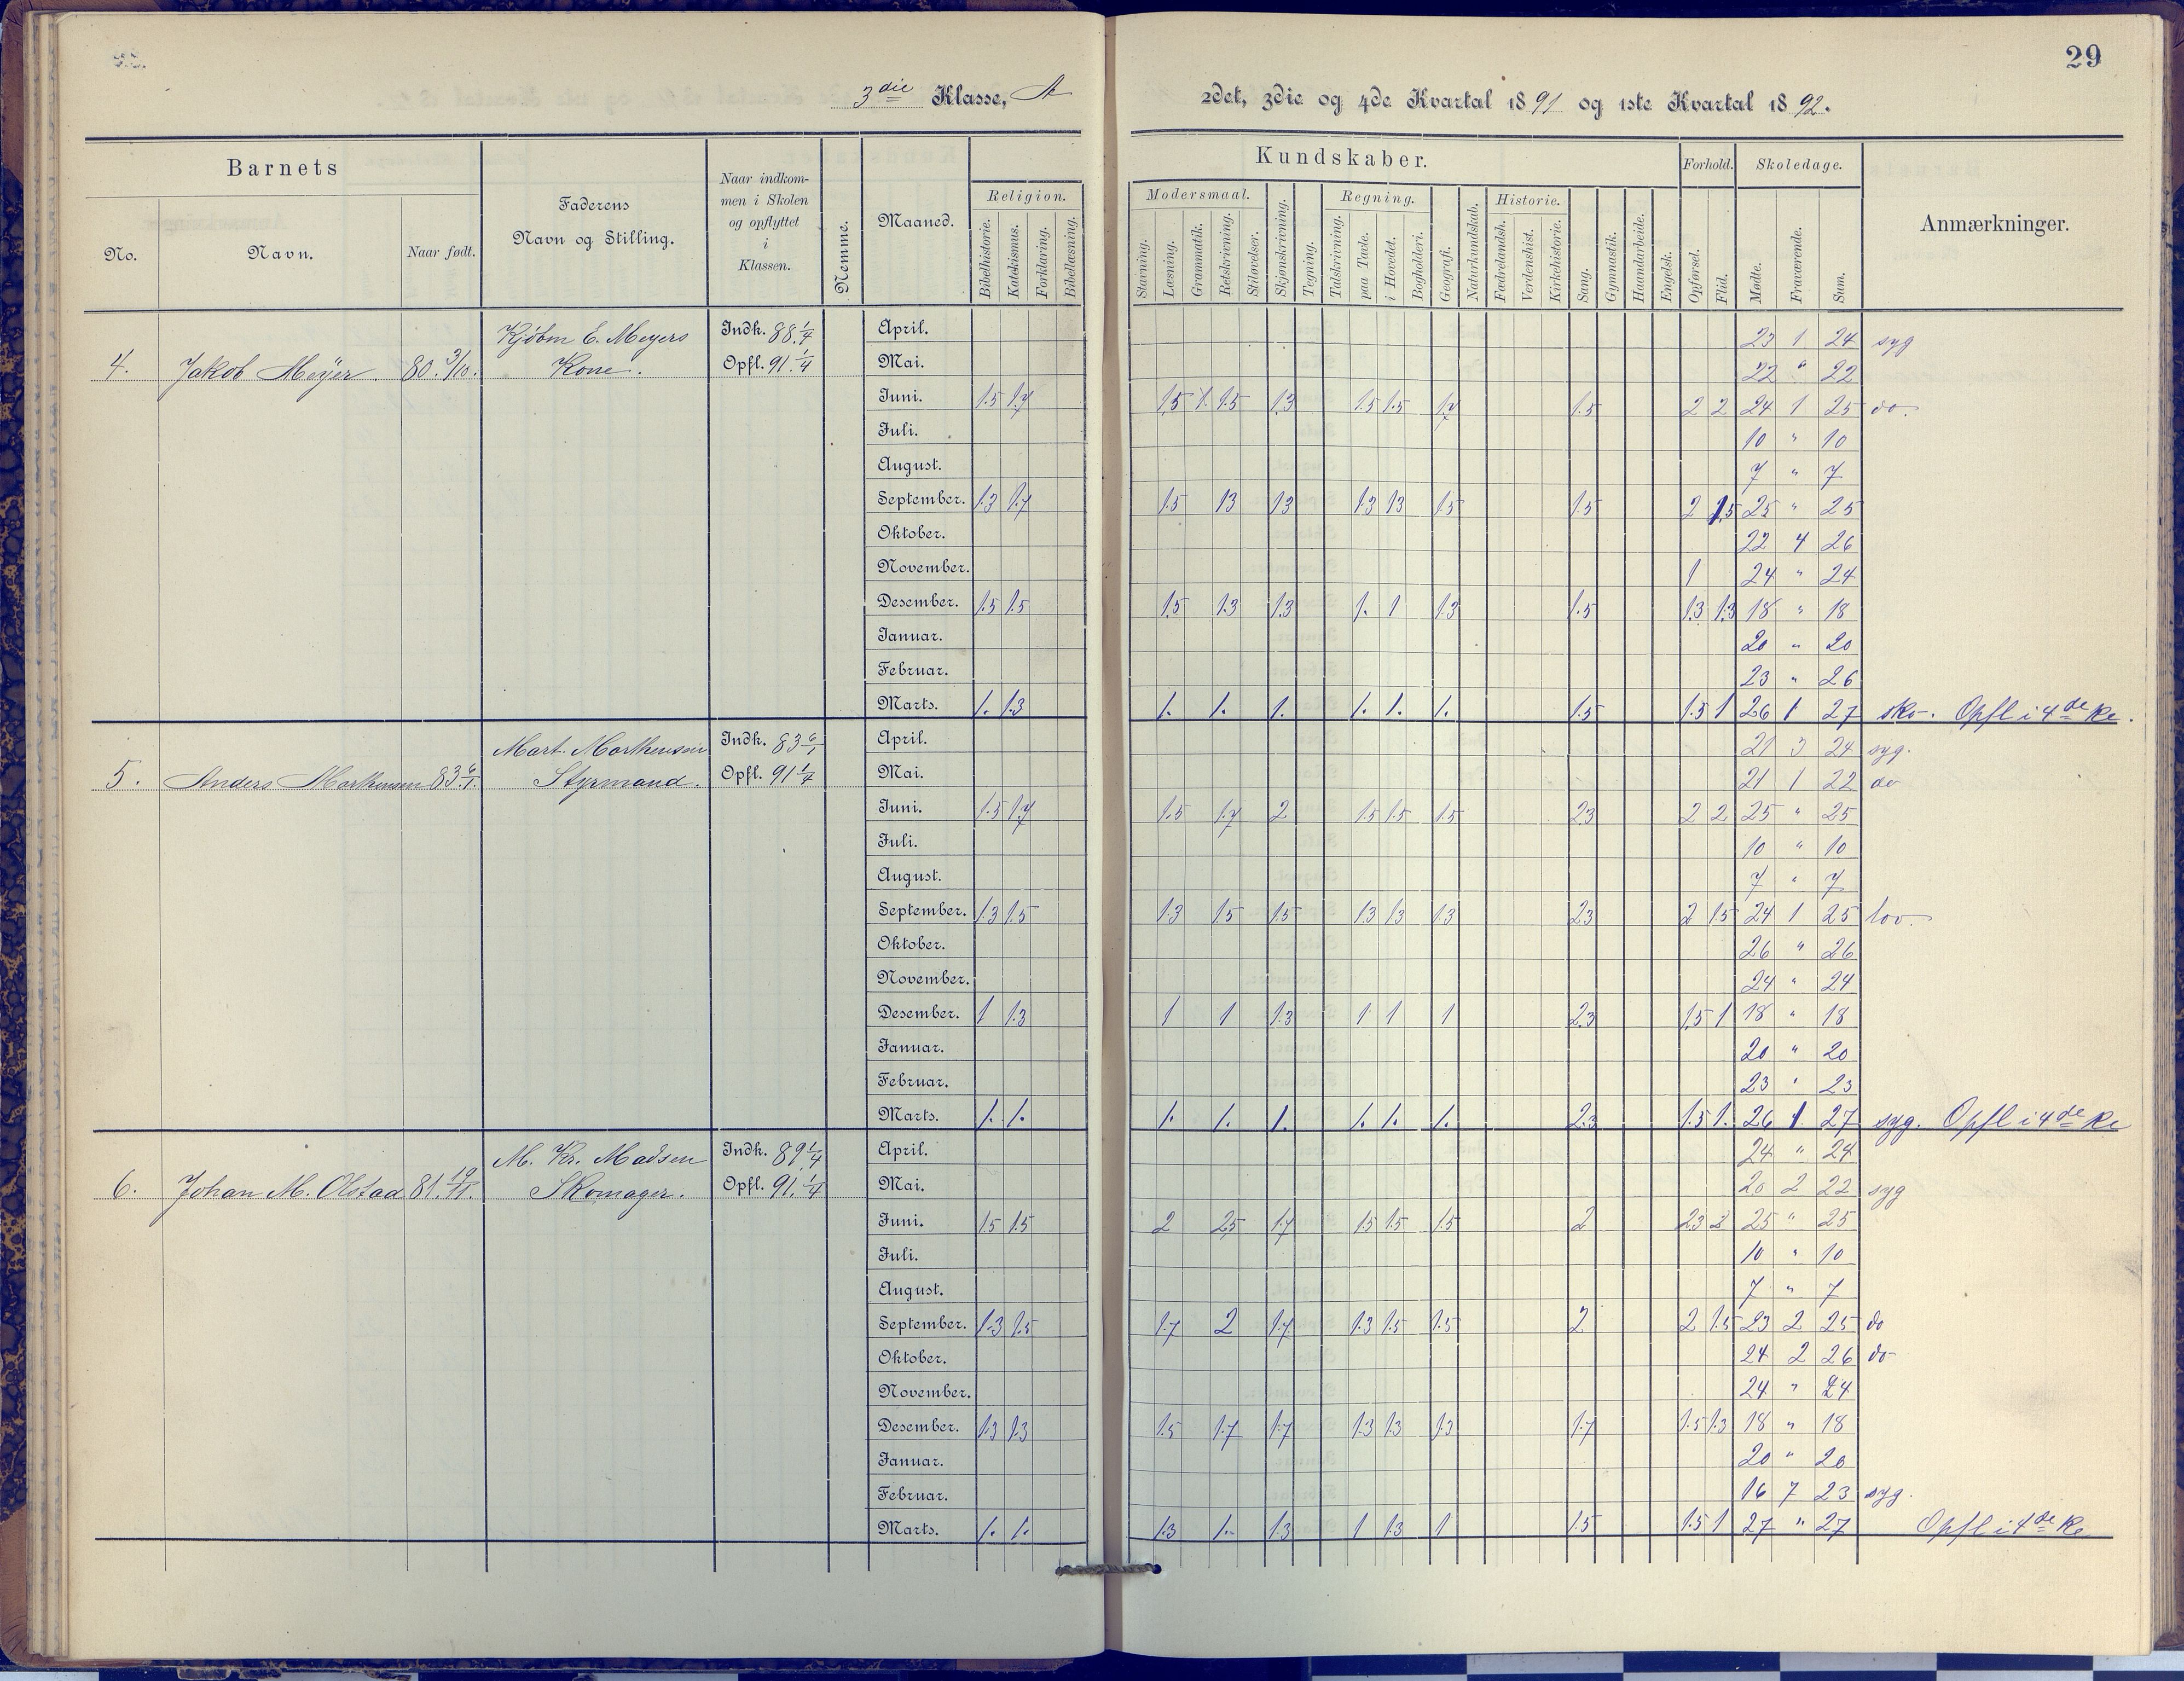 29
3die Klasse, A
2det, 3die og 4de Kvartal 1891 og 1ste Kvartal 1892.
Barnets
No.
Navn.
Naar født.
Faderens
Navn og Stilling.
Naar indkom-
men i Skolen
og opflyttet
i
Klassen.
Nemme.
Maaned.
Kundskaber.
Religion.
Bibelhistorie.
Katekismus.
Forklaring.
Bibellæsning.
Modersmaal.
Stavning.
Læsning.
Grammatik.
Retskrivning.
Stiløvelser.
Skjønskrivning.
Tegning.
Regning.
Talskrivning.
paa Tavle.
i Hovedet.
Bogholderi.
Geografi.
Naturkundskab.
Historie.
Fædrelandsh.
Verdenshist.
Kirkehistorie.
Sang.
Gymnastik.
Haandarbeide.
Engelsk.
Forhold.
Opførsel.
Flid.
Skoledage.
Mødte.
Fraværende.
Sum.
Anmærkninger.
4. Jakob Meyer. 80. 3/10. Kjøbm E. Meyers Kone. Indk. 88. 1/4 Opfl. 91. 1/4
April. 23 1 24 syg
Mai. 22 " 22
Juni. 1.5 1.7 1.5 1. 1.5 1.3 1.5 1.5 1.7 1.5 2 2 24 1 25 do.
Juli. 10 " 10
August. 7 " 7
September. 1.3 1.7 1.5 1.3 1.3 1.3 1.3 1.5 1.5 2 1.5 25 " 25
Oktober. 22 4 26
November. 1 24 " 24
Desember. 1.5 1.5 1.5 1.3 1.3 1. 1 1.3 1.5 1.3 1.3 18 " 18
Januar. 20 " 20
Februar. 23 " 26
Marts. 1. 1.3 1. 1. 1. 1. 1. 1. 1.5 1.5 1 26 1 27 sko. Opfl i 4de Kl.
5. Anders Marthinsen 83 6/1. Mart. Marthinsen Styrmand. Indk. 83 6/1 Opfl. 91 1/4
April. 21 3 24 syg.
Mai. 21 1 22 do
Juni. 1.5 1.7 1.5 1.7 2 1.5 1.5 1.5 23 2 2 25 " 25
Juli. 10 " 10
August. 7 " 7
September. 1.3 1.5 1.3 1.5 1.5 1.3 1.3 1.3 23 2 1.5 24 1 25 lov.
Oktober. 26 " 26
November. 24 " 24
Desember. 1 1.3 1 1 1.3 1 1 1 2.3 1.5 1 18 " 18
Januar. 20 " 20
Februar. 23 " 23
Marts. 1. 1. 1. 1. 1. 1. 1. 1. 2.3 1.5 1. 26 1 27 syg. Opfl i 4de Kl
6. Johan M. Olstad 81. 19/11. M. Kr. Madsen Skomager. Indk. 89 1/4 Opfl. 91. 1/4
April. 24 " 24
Mai. 20 2 22 syg
Juni. 1.5 1.5 2 25 1.7 1.5 1.5 1.5 2 23 2 25 " 25
Juli. 10 " 10
August. 7 " 7
September. 1.3 1.5 1.7 2 1.7 1.3 1.5 1.5 2 2 1.5 23 2 25 do
Oktober. 24 2 26 do
November. 24 " 24
Desember. 1.3 1.3 1.5 1.7 1.7 1.3 1.3 1.3 1.7 1.5 1.3 18 " 18
Januar. 20 " 20
Februar. 16 7 23 syg.
Marts. 1. 1. 1.3 1. 1.3 1 1.3 1 1.5 1.5 1 27 " 27 Opfl i 4de Kl